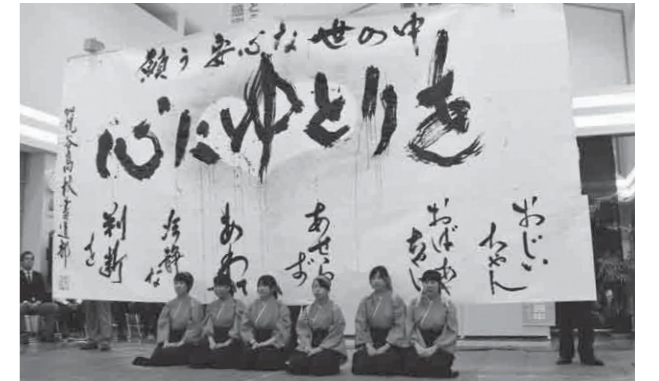 願う安心な世の中
心にゆとりを
おじい
ちゃん
おばあ
あせら
ず
あわて
冷静な
判断
を
高校書道部